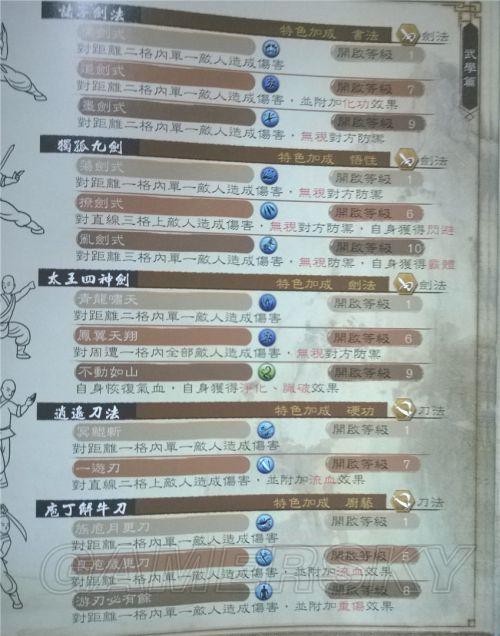 武學篇
劍法 特色加成 書法 劍法
劍式 開啟等級 1
對距離二格內單一敵人造成傷害
劍式 開啟等級 7
對距離二格內單一敵人造成傷害，並附加化功效果
劍式 開啟等級 9
對距離二格內單一敵人造成傷害，無視對方防禦
獨孤九劍 特色加成 悟性 劍法
蕩劍式 開啟等級 1
對距離一格內單一敵人造成傷害，無視對方防禦
撩劍式 開啟等級 6
對直線三格上敵人造成傷害，無視對方防禦，自身獲得閃避
亂劍式 開啟等級 10
對距離三格內單一敵人造成傷害，無視防禦，自身獲得霸體
太王四神劍 特色加成 劍法 劍法
青龍嘯天 開啟等級 1
對距離二格內單一敵人造成傷害
鳳翼天翔 開啟等級 6
對周遭一格內全部敵人造成傷害，無視對方防禦
不動如山 開啟等級 9
自身恢復氣血，自身獲得淨化、識破效果
逍遙刀法 特色加成 硬功 刀法
冥鯤斬 開啟等級 1
對距離一格內單一敵人造成傷害
一遊刃 開啟等級 7
對直線二格上敵人造成傷害，並附加流血效果
庖丁解牛刀 特色加成 廚藝 刀法
族庖月更刀 開啟等級 1
對距離一格內單一敵人造成傷害
良庖歲更刀 開啟等級 5
對距離一格內單一敵人造成傷害，並附加流血效果
游刃必有餘 開啟等級 8
對距離一格內單一敵人造成傷害，並附加重傷效果
GAMERSKY